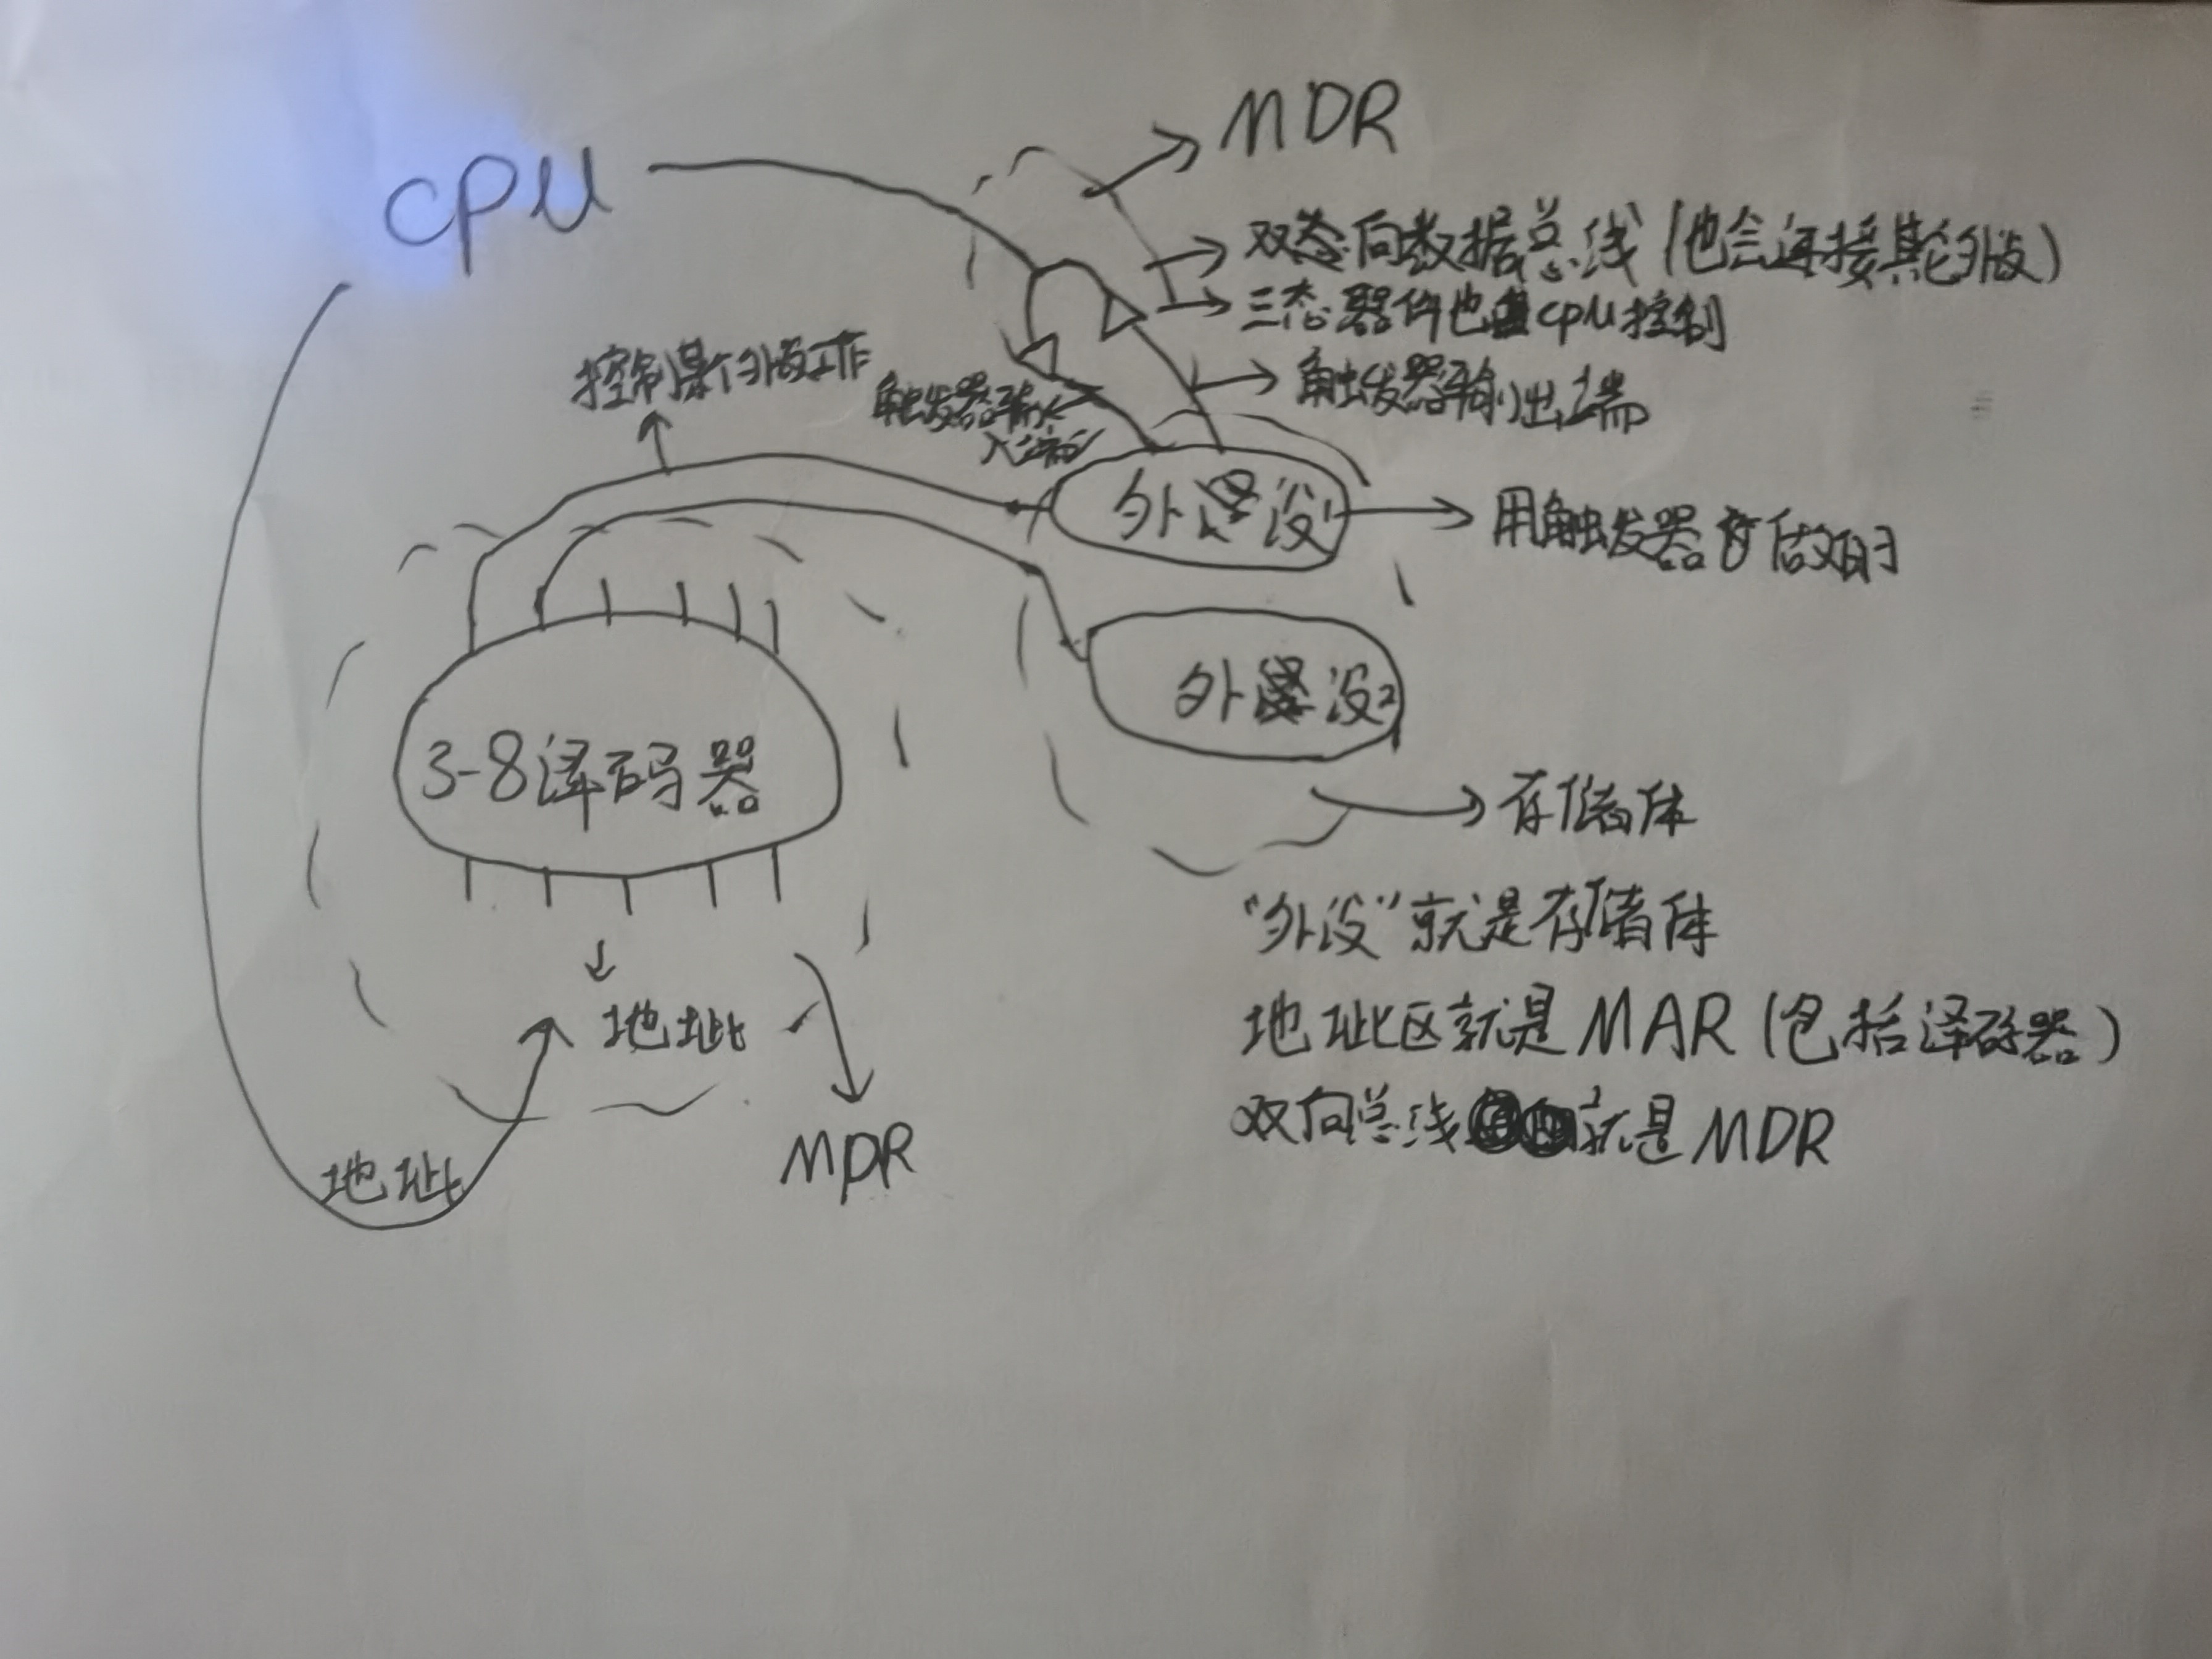 CPU
MDR
双态向数据总线(也会连接其它外设)
三态器件也由CPU控制
控制某个外设工作
触发器输入端
触发器输出端
外设1
用触发器做的
外设2
3-8译码器
存储体
"外设"就是存储体
地址
地址区就是MAR(包括译码器)
双向总线就是MDR
地址
MDR